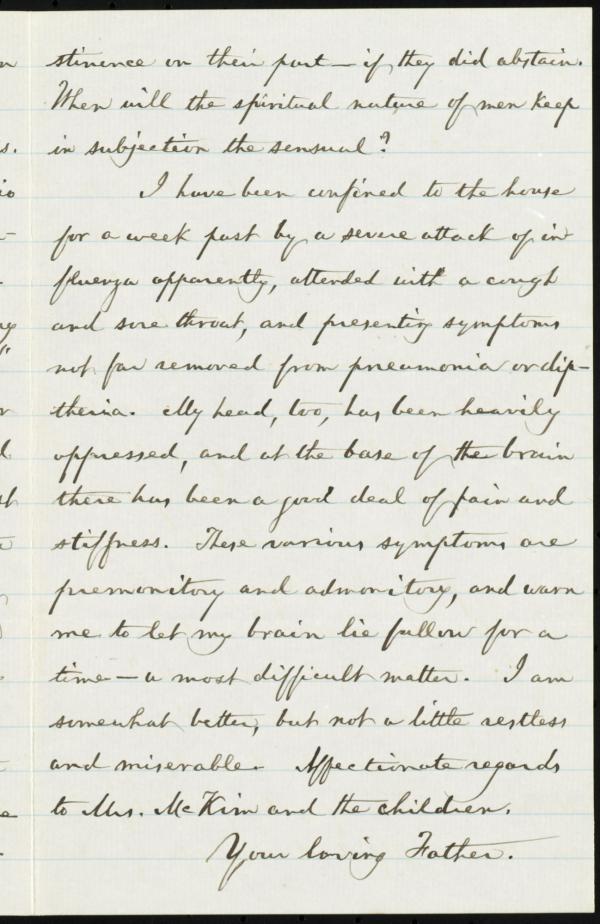 stinence on their part — if they did abstain.
When will the spiritual nature of men keep
in subjection the sensual?
I have been confined to the house
for a week past by a severe attack of in-
fluenza apparently, attended with a cough
and sore throat, and presenting symptoms
not far removed from pneumonia or dip-
theria. My head, too, has been heavily
oppressed, and at the base of the brain
there has been a good deal of pain and
stiffness. These various symptoms are
premonitory and admonitory, and warn
me to let my brain lie fallow for a
time — a most difficult matter. I am
somewhat better, but not a little restless
and miserable. Affectionate regards
to Mrs. McKim and the children.
Your loving Father.